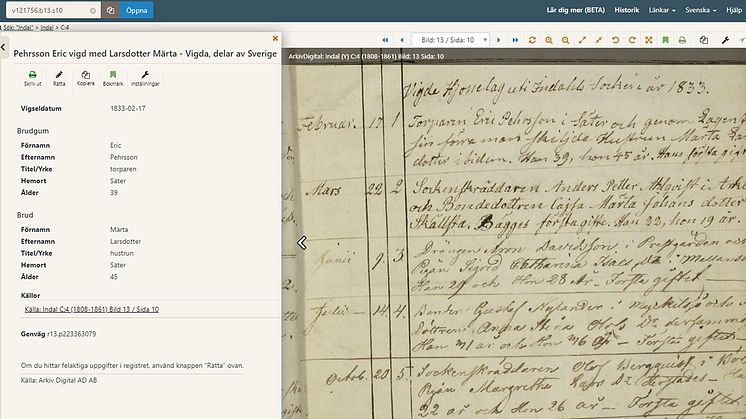 v121756.b13.s10
Öppna
Lär dig mer (BETA)
Historik
Länkar
Svenska
Hjälp
Sök: "Indal" > Indal > C:4
Bild: 13 / Sida: 10
Pehrsson Eric vigd med Larsdotter Märta - Vigda, delar av Sverige
ArkivDigital: Indal (Y) C:4 (1808-1861) Bild: 13 Sida: 10
Skriv ut
Rätta
Kopiera
Bokmärk
Inställningar
Vigseldatum 1833-02-17
Brudgum
Förnamn Eric
Efternamn Pehrsson
Titel/Yrke torparen
Hemort Säter
Ålder 39
Brud
Förnamn Märta
Efternamn Larsdotter
Titel/Yrke hustrun
Hemort Säter
Ålder 45
Källor
Källa: Indal C:4 (1808-1861) Bild 13 / Sida 10
Genväg r13.p223363079
Om du hittar felaktiga uppgifter i registret, använd knappen "Rätta" ovan.
Källa: Arkiv Digital AD AB
Vigde Hjonelag uti Indahls Socken i år 1833.
Februar. 17. 1 Torparen Eric Pehrsson i Säter och genom Lagen
sin förra man skiljda Hustrun Märta
dotter ibidem. Han 39, hon 45 år. Hans första gift
Mars 22 2 Sockenskräddaren Anders Petter
och Bondedottren Cajsa Märta Johans dotter
Bägges första gifte. Han 22, hon 19 år.
Junii 9. 3. Drängen Aron Davidsson i Prestgården
Pigan Sigrid Catharina
Han 29 och Hon 28 År. Första giftet
Julii 14. 4. Bonden Gustaf Nylander i
Dottren Anna
Han 31 år och Hon 36 År - Första giftet
Octob. 20 5. Sockenskräddaren Olof Bergquist i
Pigan Margretha
22 år och Hon 26 år - Första